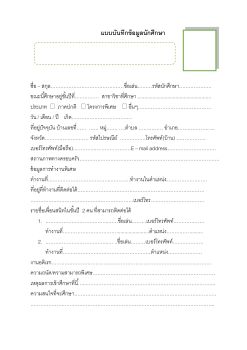 แบบบันทึกข้อมูลนักศึกษา
ชื่อ – สกุล................................................ชื่อเล่น...........รหัสนักศึกษา.......................
ขณะนี้ศึกษาอยู่ชั้นปีที่.................สาขาวิชาที่ศึกษา................................................
ประเภท ☐ ภาคปกติ ☐ โครงการพิเศษ ☐ อื่นๆ................................................
วัน / เดือน / ปี เกิด........................................
ที่อยู่ปัจจุบัน บ้านเลขที่...............หมู่............ตำบล..................อำเภอ.......................
จังหวัด..............................รหัสไปรษณีย์..................โทรศัพท์(บ้าน).......................
เบอร์โทรศัพท์(มือถือ)........................................E – mail address...............................
สถานภาพทางครอบครัว................................................................................
ข้อมูลการทำงานพิเศษ
ทำงานที่................................................ทำงานในตำแหน่ง...............................
ที่อยู่ที่ทำงานที่ติดต่อได้................................................................................
................................................................เบอร์โทร........................................
รายชื่อเพื่อนสนิทในชั้นปี 2 คน ที่สามารถติดต่อได้
1. ................................................ชื่อเล่น..........เบอร์โทรศัพท์.......................
ทำงานที่................................................ตำแหน่ง...............................
2. ................................................ชื่อเล่น..........เบอร์โทรศัพท์.......................
ทำงานที่................................................ตำแหน่ง...............................
งานอดิเรก................................................................................
ความถนัด/ความสามารถพิเศษ................................................................
เหตุผลการเข้าศึกษาที่นี่................................................................
ความสนใจที่จะศึกษา................................................................
................................................................................